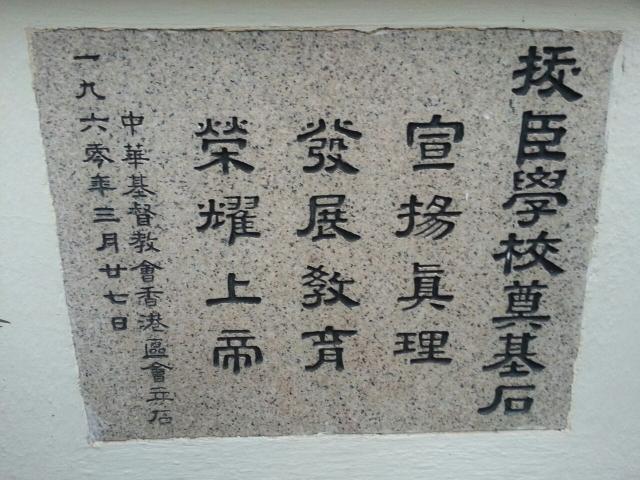 拔臣學校奠基石
宣揚眞理
發展教育
榮耀上帝
中華基督教會香港區會立石
一九六零年三月廿七日